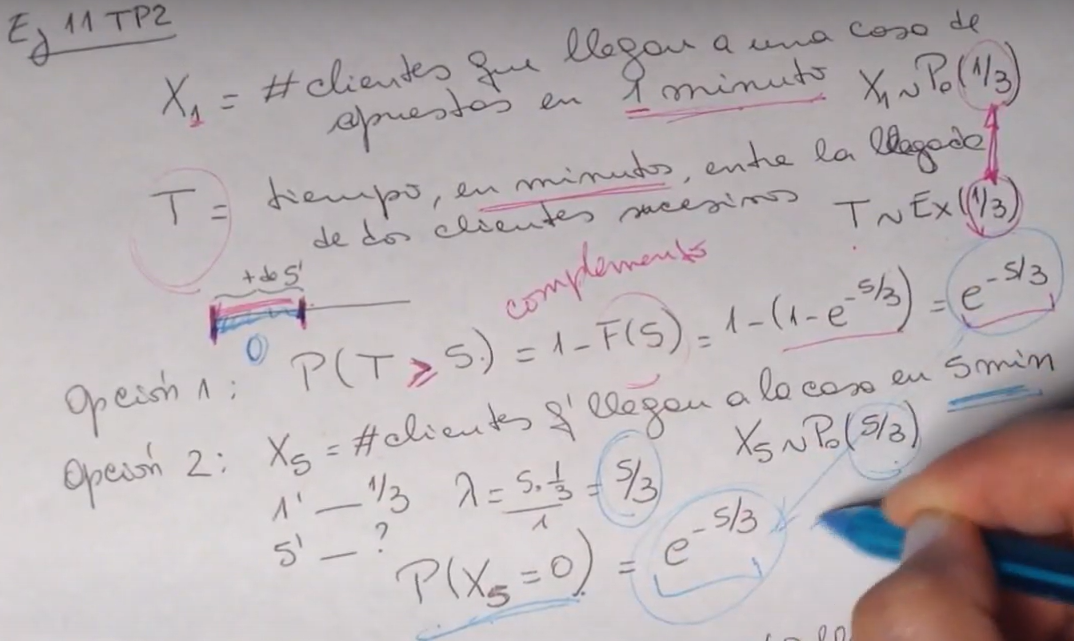 Ej 11 TP2
X₁ = # clientes que llegan a una casa de
apuestas en 1 minuto X₁ ~ Po(1/3)
T = tiempo, en minutos, entre la llegada
de dos clientes sucesivos T ~ Ex(1/3)
+ de 5'
0
complemento
Opción 1: P(T ≥ 5) = 1 - F(5) = 1 - (1 - e^-5/3) = e^-5/3
Opción 2: X₅ = # clientes q' llegan a la casa en 5 min
X₅ ~ Po(5/3)
1' — 1/3 λ = 5.1/3 / 1 = 5/3
5' — ?
P(X₅ = 0) = e^-5/3